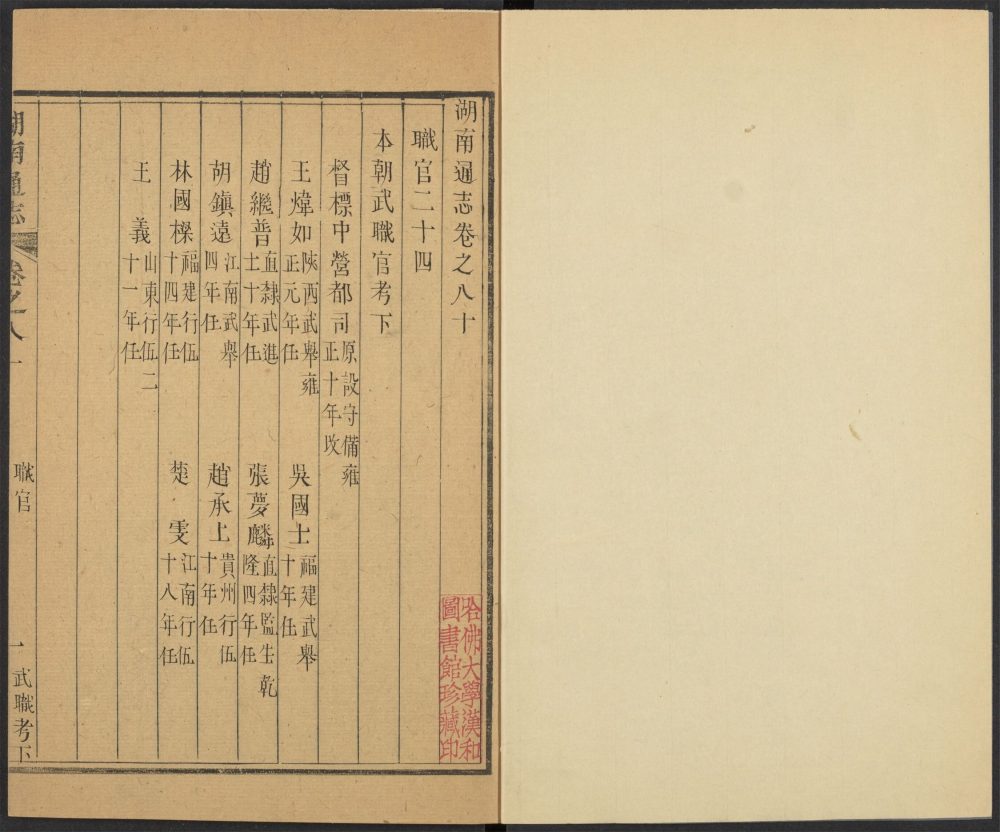 湖南通志卷之八十
職官二十四
本朝武職官考下
督標中營都司原設守備雍正十年改
王煒如陝西武舉雍正元年任 吳國士福建武舉十年任
趙繼普直隸武進士十年任 張夢麟直隸監生乾隆四年任
胡鎭遠江南武舉四年任 趙承上貴州行伍十年任
林國樑福建行伍十四年任 楚雯江南行伍十八年任
王義山東行伍二十一年任
湖南通志 卷之八十 職官 一 武職考下
哈佛大學漢和
圖書館珍藏印